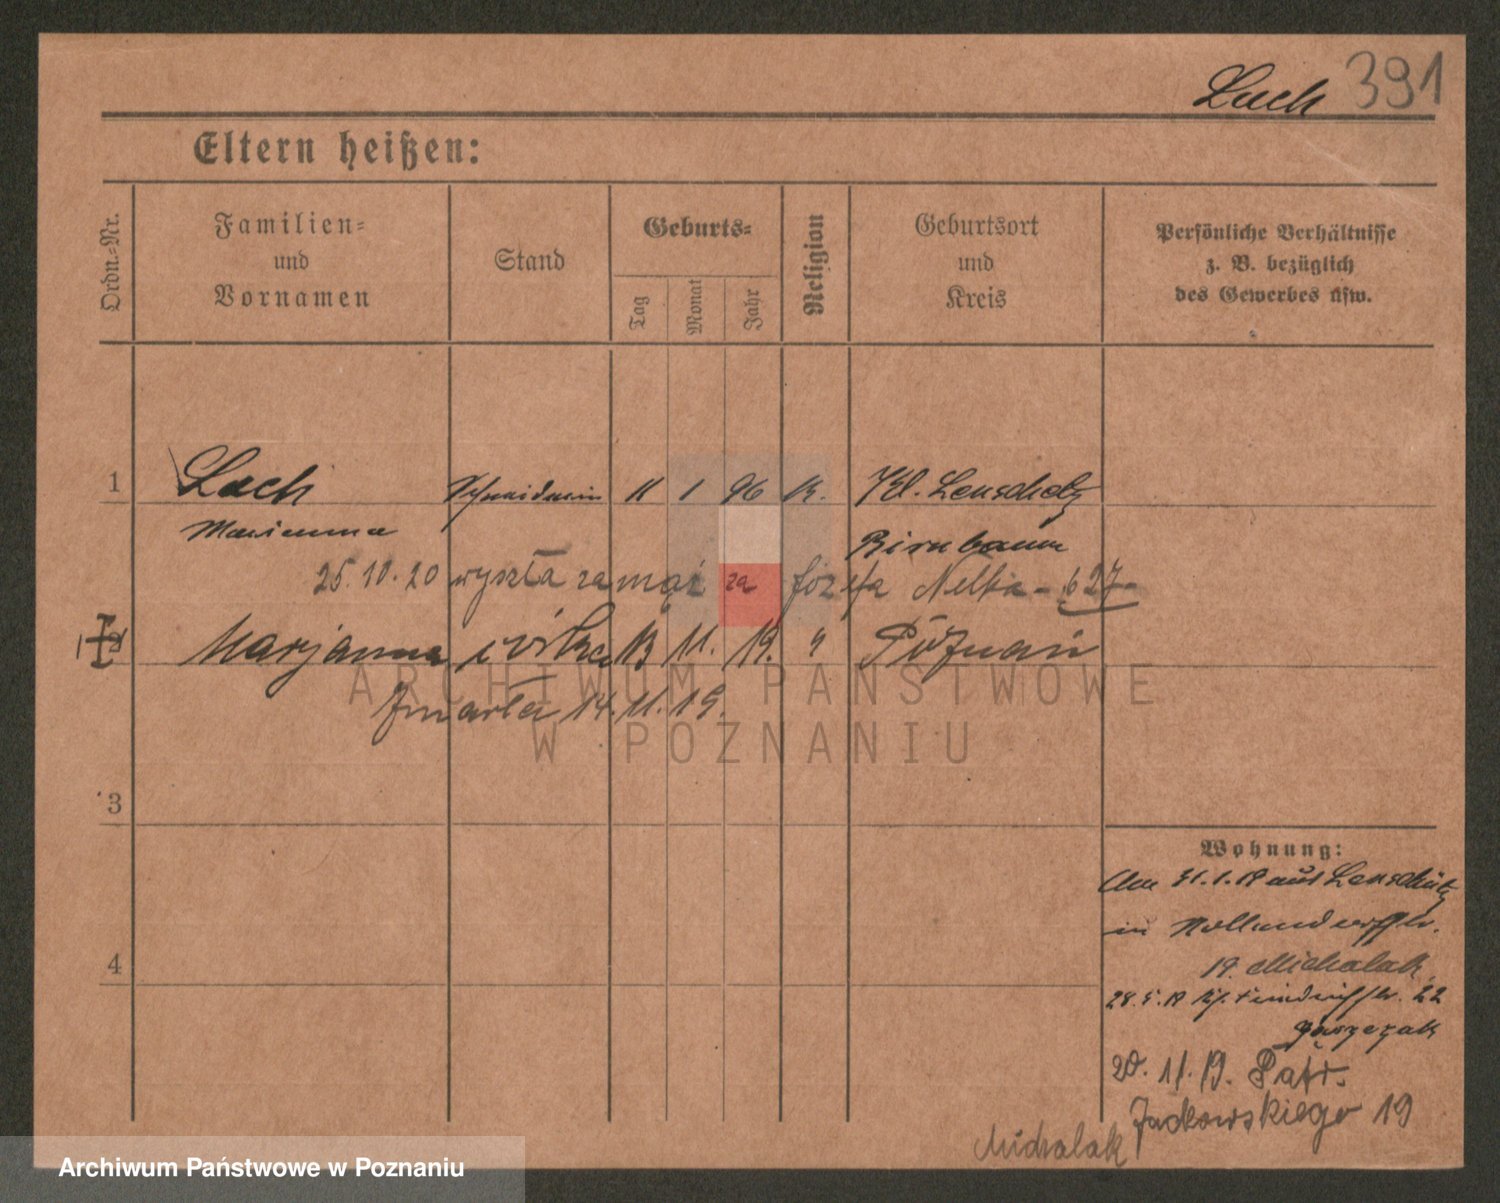 Lach 391
Eltern heißen:
Ordn.-Nr.
Familien-
und
Vornamen
Stand
Geburts-
Tag
Monat
Jahr
Religion
Geburtsort
und
Kreis
Persönliche Verhältnisse
z. B. bezüglich
des Gewerbes usw.
1 Lach Schneiderin 11 1 96 K. Kl. Lenschetz
Marianna Birnbaum
25.10.20 wyszła zamąż za Józefa Nelka - 627
Marjanna córka 13 11. 19. " Poznań
Zmarła 14.11.19.
3
4
Wohnung:
Am 31.1.18 aus Lenschütz
in Hollanderstr.
19. Michalak
28.5.18 Friedrichstr. 22
20.11.19. Patr.
Jackowskiego 19
Michalak
ARCHIWUM PAŃSTWOWE
W POZNANIU
Archiwum Państwowe w Poznaniu